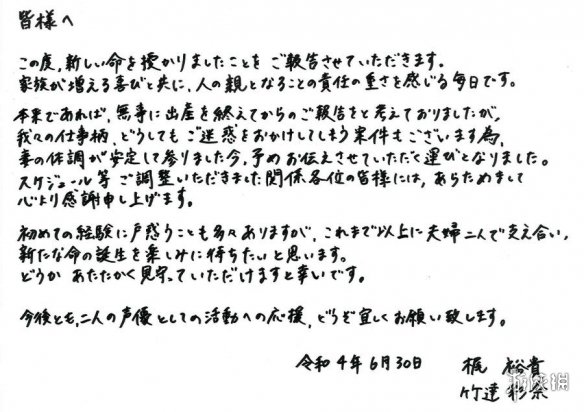 皆様へ
この度、新しい命を授かりましたことをご報告させていただきます。
家族が増える喜びと共に、人の親となることの責任の重さを感じる毎日です。
本来であれば、無事に出産を終えてからのご報告をと考えておりましたが、
我々の仕事柄、どうしてもご迷惑をおかけしてしまう案件もございます為、
妻の体調が安定して参りました今、予めお伝えさせていただく運びとなりました。
スケジュール等ご調整いただきました関係各位の皆様には、あらためまして
心より感謝申し上げます。
初めての経験に戸惑うことも多々ありますが、これまで以上に夫婦二人で支え合い、
新たな命の誕生を楽しみに待ちたいと思います。
どうかあたたかく見守っていただけますと幸いです。
今後とも、二人の声優としての活動への応援、どうぞ宜しくお願い致します。
令和4年6月30日 梶 裕貴
竹達 彩奈